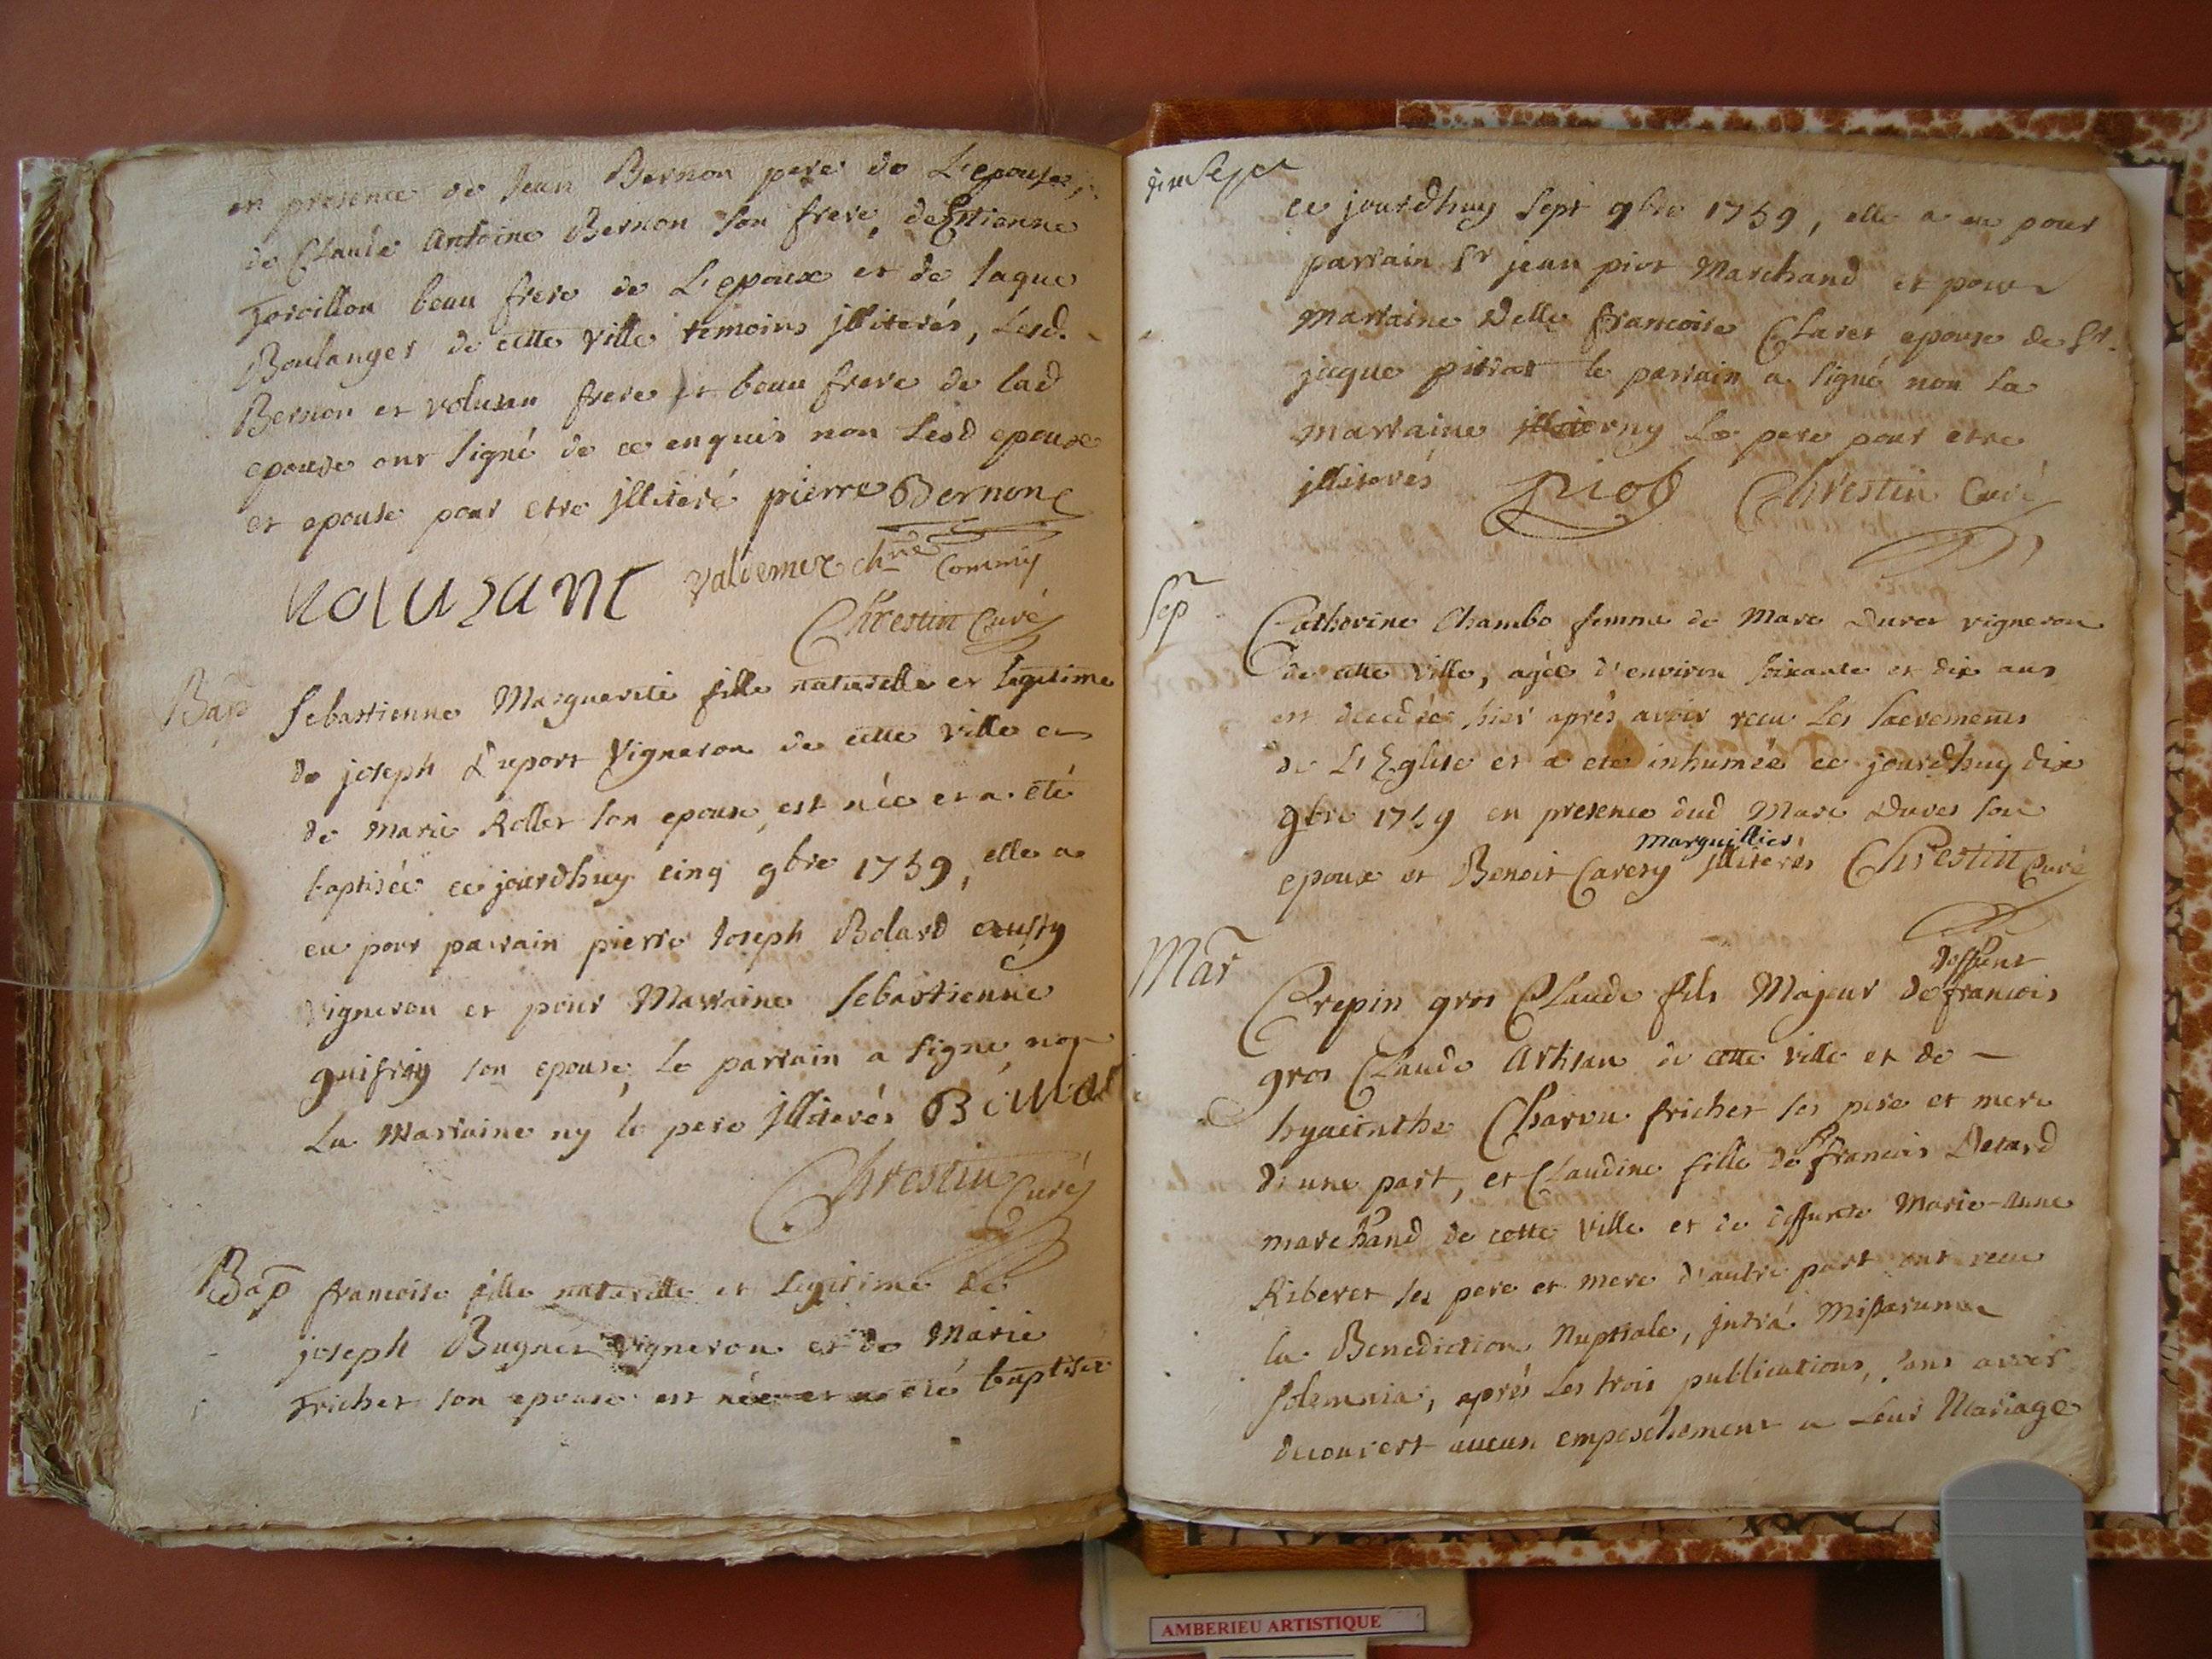 en presence de Jean Bernon pere de L'epouse,
de Claude Antoine Bernon son frere, de Etienne
beau frere de L'epoux et de Jaque
Boulanger de cette ville temoins jlliterés, Lesd.
Bernon et volusan frere et beau frere de lad
epouse ont signé de ce enquis non Lesd epoux
et epouse pour etre jlliteré pierre Bernon
volusant chne Commis
Chrestin Curé
Bap
Sebastienne Marguerite fille naturelle et legitime
de joseph Duport Vigneron de cette ville et
de marie Rollet son epouse, est née et a été
baptisée ce jourdhuy cinq 9bre 1759, elle a
eu pour parrain pierre Joseph Bolard aussy
vigneron et pour Marraine Sebastienne
son epouse, le parrain a signé non
La Marraine ny le pere jlliterés
Chrestin Curé
Bap
francoise fille naturelle et legitime de
joseph Bugnet vigneron et de Marie
fricher son epouse est née et a été baptisée
ce jourdhuy sept 9bre 1759, elle a eu pour
parrain Sr jean piot Marchand et pour
marraine Delle francoise Claret epouse de Sr
jaque pittrat le parrain a signé non la
marraine ny Le pere pour etre
jlliterés Piot Chrestin Curé
Sep
Catherine Chambo femme de Marc Duret vigneron
de cette ville, agée d'environ soixante et dix ans
est decedée hier aprés avoir recu Les sacrements
de L'Eglise et a eté inhumée ce jourdhuy dix
9bre 1759 en presence dud Marc Duret son
marguillier
epoux et Benoit Carery jlliterés Chrestin Curé
Mar
deffunt
Crepin gros Claude fils Majeur de francois
gros Claude Artisan de cette ville et de
hyacinthe Charvu fricher ses pere et mere
d'une part, et Claudine fille de Sr francois Detard
marchand de cette ville et de deffunte Marie-Anne
Riberet ses pere et mere d'autre part ont recu
la Benediction Nuptiale, jntrá Missarum
solemnia, aprés Les trois publications, sans avoir
decouvert aucun empeschement a Leur Mariage
AMBERIEU ARTISTIQUE